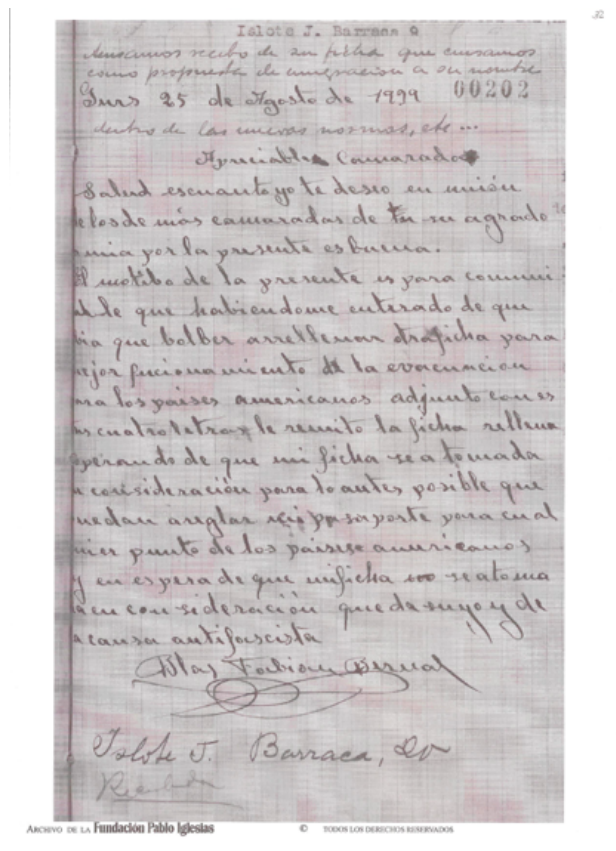 32
Islote J. Barraca 9
Acusamos recibo de su ficha que cursamos
como propuesta de emigración a su nombre
Gurs 25 de Agosto de 1939 00202
dentro de las nuevas normas, etc...
Apreciable Camarada
Salud es cuanto yo te deseo en unión
e los de más camaradas de tu su agrado
mia por la presente es buena.
El motibo de la presente es para comuni
le que habiendome enterado de que
bia que bolber arrellenar otra ficha para
ejor fucionamiento de la evacunción
ra los paises americanos adjunto con es
as cuatro letras le remito la ficha rellena
sperando de que mi ficha se a tomada
n consideración para lo antes posible que
uedan areglar mi pasaporte para cual
uier punto de los paises americanos
y en espera de que mi ficha se atoma
a en consideración queda suyo y de
a causa antifascista
Blas Fabian Bernal
Islote J. Barraca, 20
ARCHIVO DE LA Fundación Pablo Iglesias © TODOS LOS DERECHOS RESERVADOS